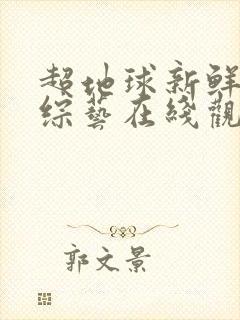 超地球新鲜
综艺在线觀
郭文景